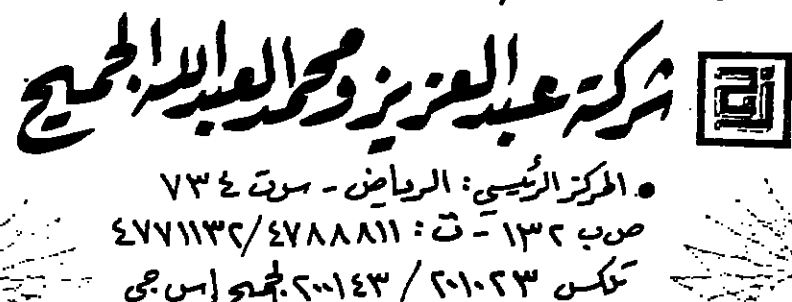 شركة عبدالعزيز ومحمد العبدالله الجميح
• المركز الرئيسي: الرياض - س.ت ٧٣٤
ص.ب ١٣٢ - ت: ٤٧٨٨٨١١/٤٧٧١١٣٢
تلكس ٢٠١٠٢٣ / ٢٠٠١٤٣ الجميح إس جي